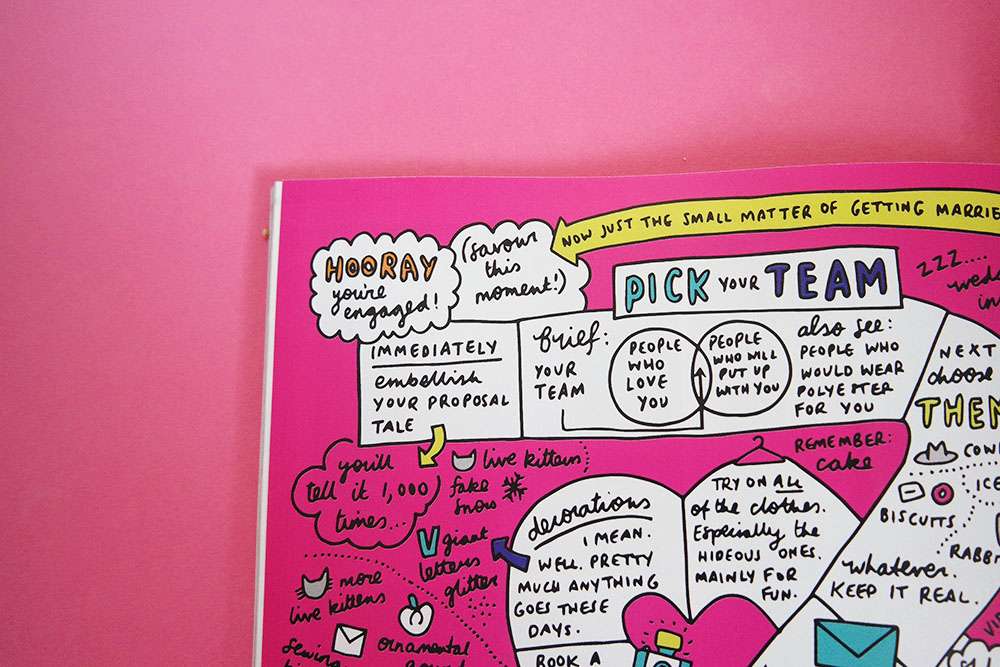 HOORAY
you're
engaged!
(savour
this
moment!)
NOW JUST THE SMALL MATTER OF GETTING MARRIE
PICK YOUR TEAM
ZZZ....
IMMEDIATELY
embellish
YOUR PROPOSAL
TALE
brief:
YOUR
TEAM
PEOPLE
WHO
LOVE
YOU
PEOPLE
WHO WILL
PUT UP
WITH YOU
also see:
PEOPLE WHO
WOULD WEAR
POLYESTER
FOR YOU
NEXT
choose
THEM
you'll
tell it 1,000
times...
live kittens
fake
snow
V giant
letters
glitter
more
live kittens
sewing
ornamental
decorations
I MEAN.
WELL. PRETTY
MUCH ANYTHING
GOES THESE
DAYS.
BOOK A
TRY ON ALL
of the clothes.
Especially the
HIDEOUS ONES.
MAINLY FOR
FUN.
REMEMBER:
cake
ICE
BISCUITS
whatever.
KEEP IT REAL.